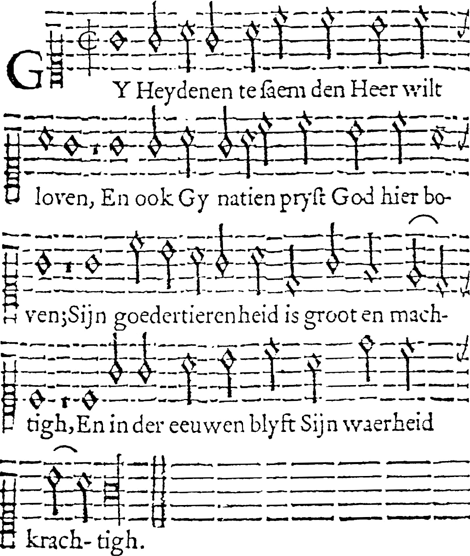 GY Heydenen te ſaem den Heer wilt
loven, En ook Gy natien pryſt God hier bo-
ven; Sijn goedertierenheid is groot en mach-
tigh, En in der eeuwen blyft Sijn waerheid
krach- tigh.